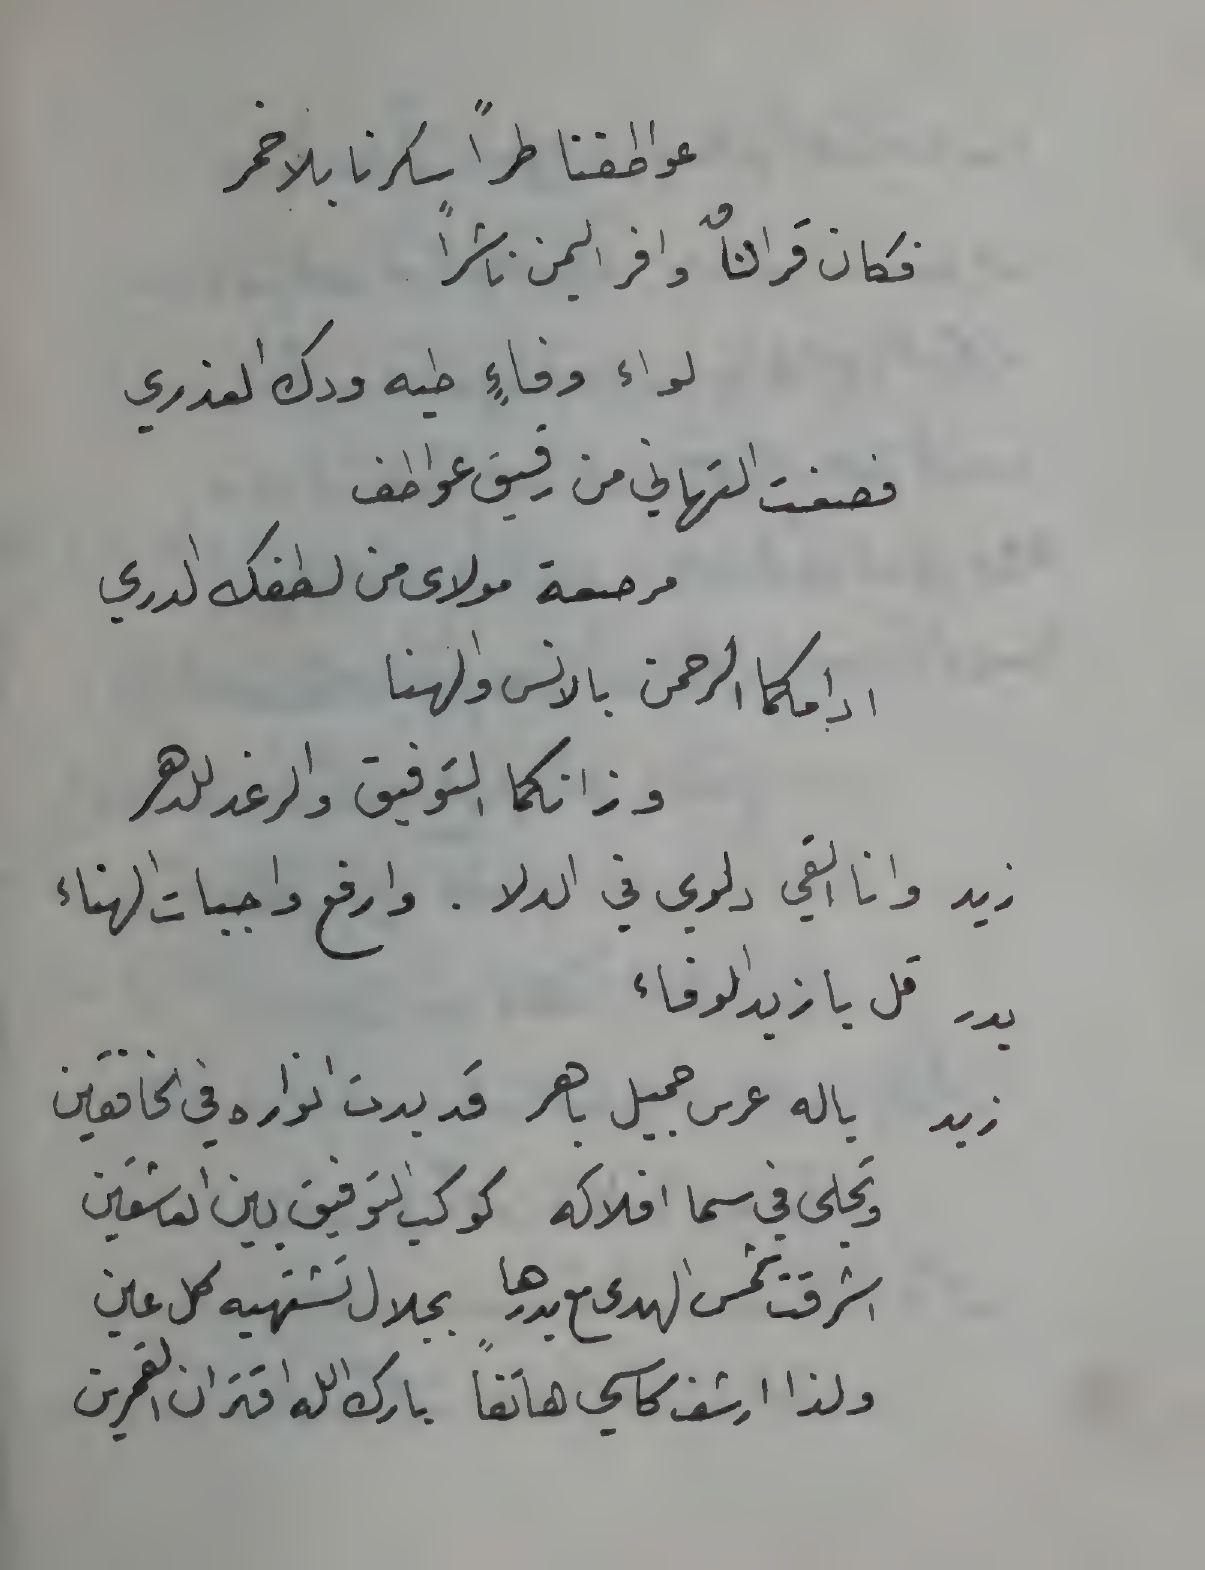 عواطفنا طراً سكرنا بلا خمر
فكان قراناً وافر اليمن ناشراً
لواء وفاءٍ طيه ودك العذري
فصغت التهاني من رقيق عواطف
مرصعة مولاى من لطفك الدري
ادامكما الرحمن بالانس والهنا
وزانكما التوفيق والرغد للدهر
زيد وانا القي دلوي في الدلا . وارفع واجبات الهناء
بدر قل يا زيد الوفاء
زيد ياله عرس جميل باهر قد بدت انواره في الخافقين
وتجلى في سما افلاكه كوكب التوفيق بين العاشقين
اشرقت شمس الهدى مع بدرها بجلال تشتهيه كل عين
ولذا ارشف كاسي هاتفاً بارك الله اقتران القمرين